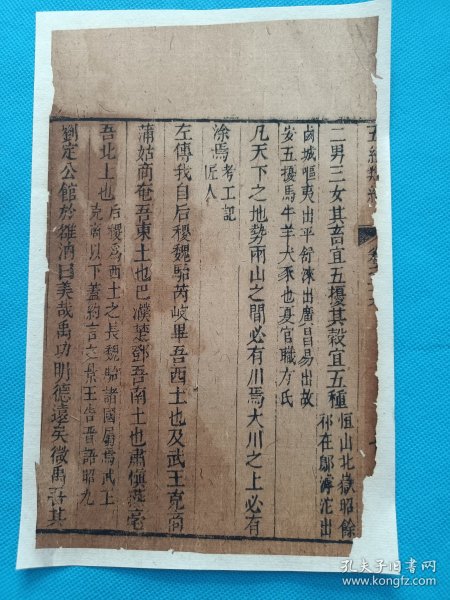 五經類編
二男三女其畜宜五擾其穀宜五種
恒山北嶽昭餘
祁在鄔滹沱出
鹵城嘔夷出平舒淶出廣昌易出故
安五擾馬牛羊犬豕也夏官職方氏
凡天下之地勢兩山之間必有川焉大川之上必有
涂焉
考工記
匠人
左傳我自后稷魏駘芮岐畢吾西土也及武王克商
蒲姑商奄吾東土也巴濮楚鄧吾南土也肅慎燕亳
吾北土也
后稷爲西土之長魏駘諸國屬焉武王
克商以下蓋約言之景王告晉語昭九
劉定公館於雒汭曰美哉禹功明德遠矣微禹吾其
孔夫子旧书网
www.kongfz.com